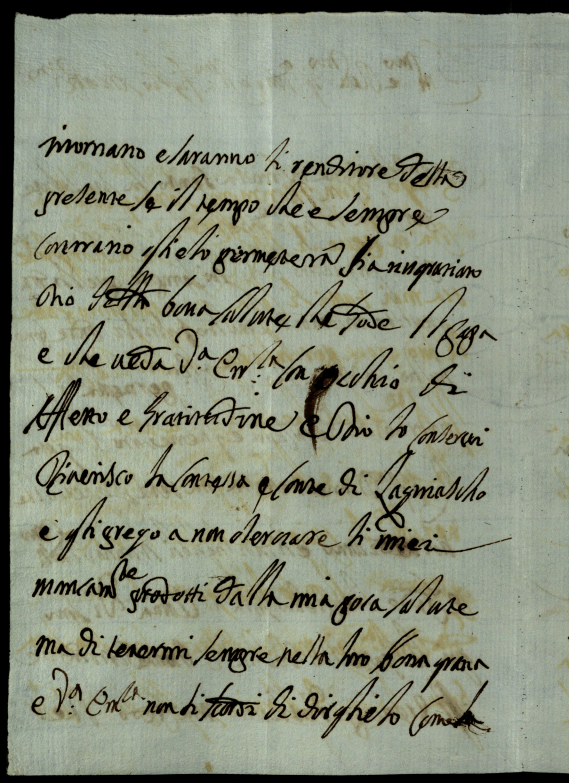 ritornano e saranno li renditore della
presente se il tempo che e sempre
contrario glielo permeterà sia ringratiato
Dio della bona salute che gode il papa
e che veda V.a Em.za con occhio di
affetto e Gratitudine e Dio lo conservi
Riverisco la Contessa e Conte di Lagniascho
e gli prego a non oservare li miei
mancam.ti prodotti dalla mia poca salute
ma di tenermi sempre nella loro bona gratia
e V.a Em.za non si scordi di dirglielo come